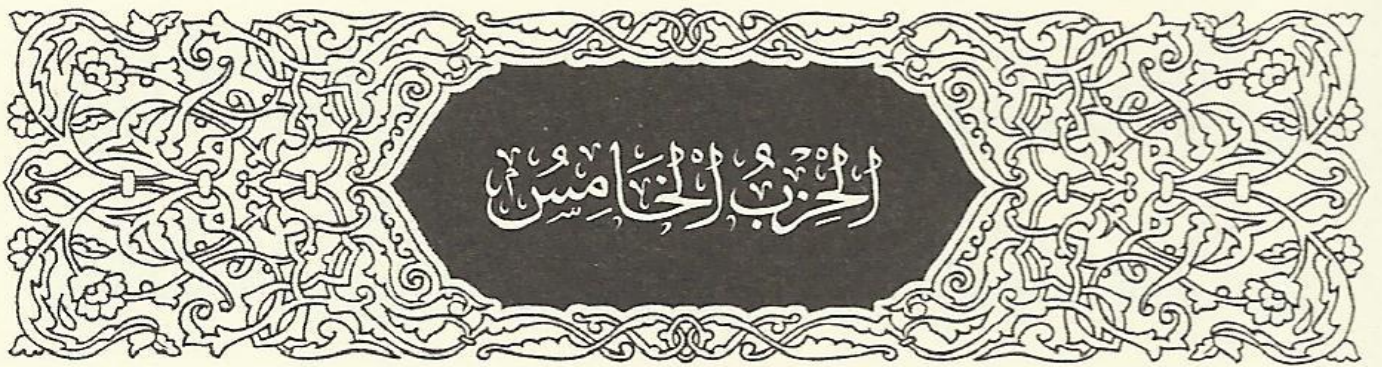 الْحِزْبُ الْخَامِسُ